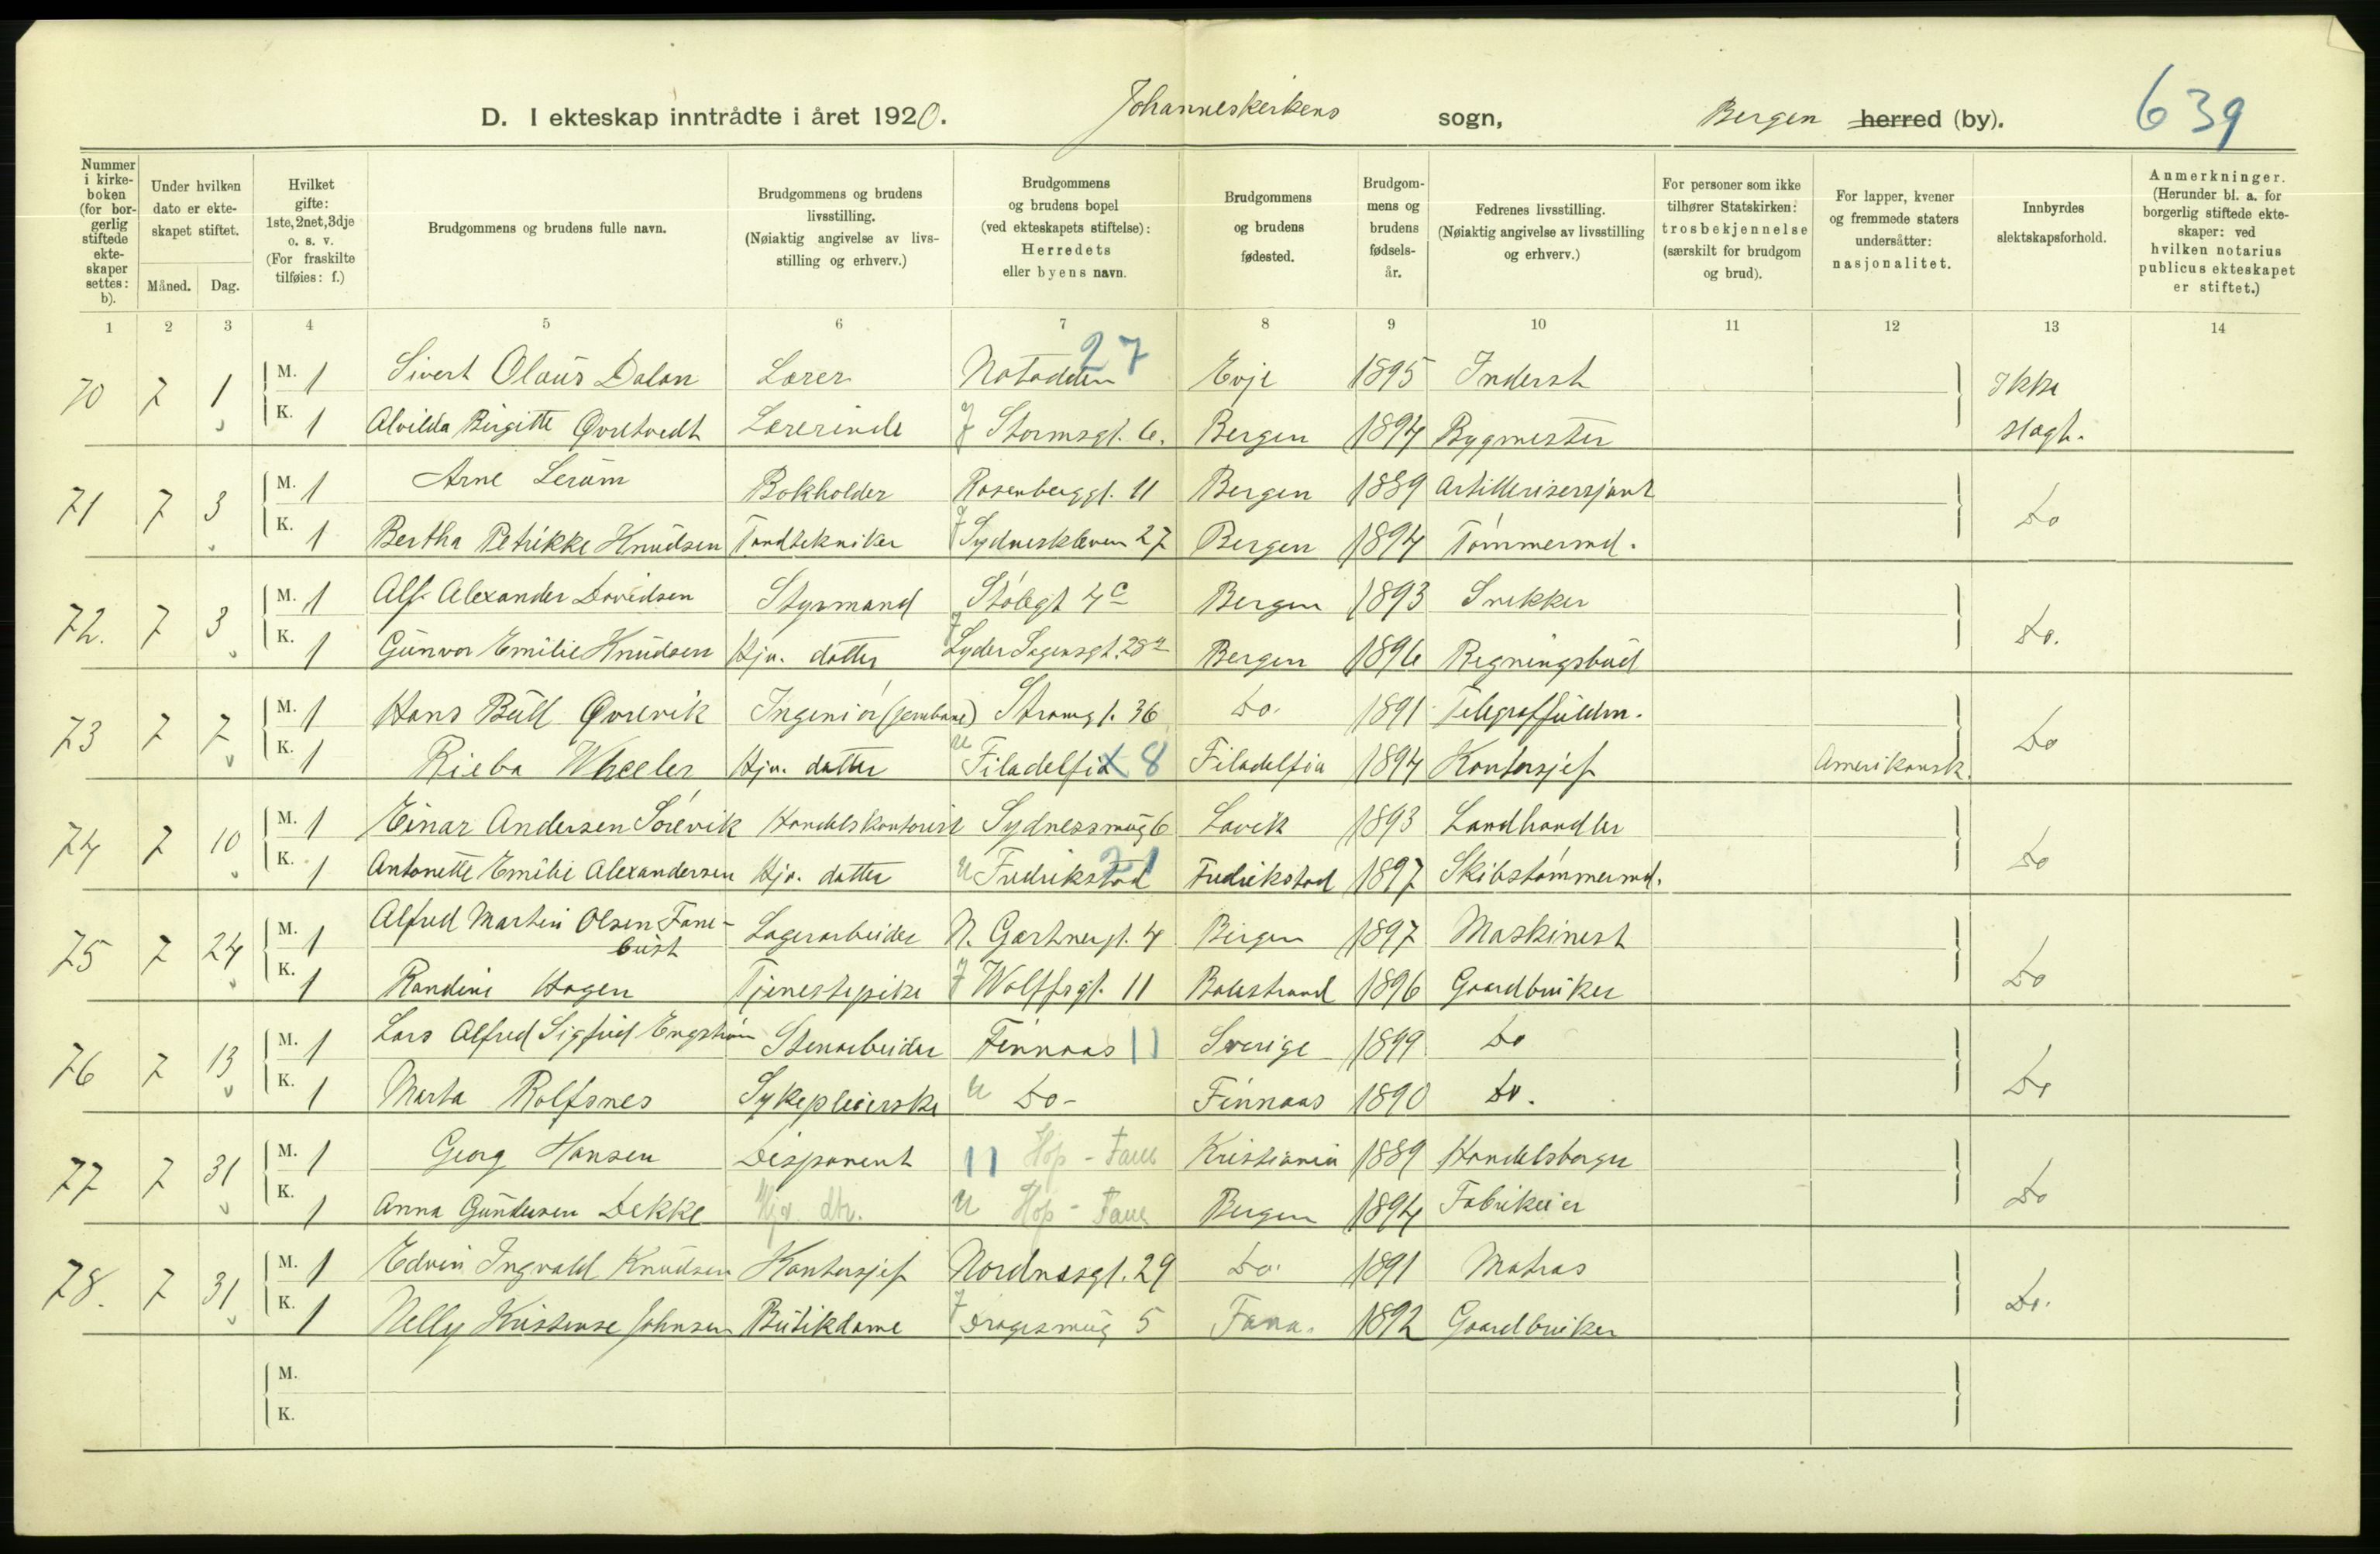 D. I ekteskap inntrådte i året 1920. Johanneskirkens sogn, Bergen herred (by). 639
Nummer i kirkeboken (for borgerlig stiftede ekteskaper settes: b).
Under hvilken dato er ekteskapet stiftet.
Måned. Dag.
Hvilket gifte: 1ste, 2net, 3dje o. s. v. (For fraskilte tilføies: f.)
Brudgommens og brudens fulle navn.
Brudgommens og brudens livsstilling. (Nøiaktig angivelse av livsstilling og erhverv.)
Brudgommens og brudens bopel (ved ekteskapets stiftelse): Herredets eller byens navn.
Brudgommens og brudens fødested.
Brudgommens og brudens fødselsår.
Fedrenes livsstilling. (Nøiaktig angivelse av livsstilling og erhverv.)
For personer som ikke tilhører Statskirken: trosbekjennelse (særskilt for brudgom og brud).
For lapper, kvener og fremmede staters undersåtter: nasjonalitet.
Innbyrdes slektskapsforhold.
Anmerkninger. (Herunder bl. a. for borgerlig stiftede ekteskaper: ved hvilken notarius publicus ekteskapet er stiftet.)
1 2 3 4 5 6 7 8 9 10 11 12 13 14
70 7 1 M. 1 Sivert Olaus Dalan Lærer Notodden 27 Evje 1895 Inderst Ikke
K. 1 Alvilda Birgitte Øvretvedt Lærerinde Stormsgt. 6. Bergen 1894 Bygmester slagt.
71 7 3 M. 1 Arne Lerum Bokholder Rosenberggt. 11 Bergen 1889 Artillerisersjant Do
K. 1 Bertha Petrikke Knudsen Tandtekniker Sydneskleven 27 Bergen 1894 Tømmermd.
72. 7 3 M. 1 Alf Alexander Davidsen Styrmand Stølegt 4c Bergen 1893 Snekker Do.
K. 1 Gunvor Emilie Knudsen Hjv. datter Lyder Sagensgt. 28a Bergen 1896 Regningsbud
73 7 7 M. 1 Hans Bull Øvrevik Ingeniør (jernbane) Strømgt. 36 Do. 1891 Telegraffuldm. Do
K. 1 Rieba Wheeler Hjv. datter u Filadelfia 8 Filadelfia 1894 Kontorsjef Amerikansk.
74 7 10 M. 1 Einar Andersen Sørevik Handelskontorist Sydnessmug 6 Lavik 1893 Landhandler Do
K. 1 Antonette Emilie Alexandersen Hjv. datter u Fredrikstad 21 Fredrikstad 1897 Skibstømmermd.
75 7 24 M. 1 Alfred Martin Olsen Fane-
bust Lagerarbeider N. Gartnergt. 4 Bergen 1897 Maskinist Do
K. 1 Randine Hagen Tjenestepike Wolffsgt. 11 Balestrand 1896 Gaardbruker
76 7 13 M. 1 Lars Alfred Sigfrid Engstrøm Stenarbeider Finnaas 11 Sverige 1899 Do Do
K. 1 Marta Rolfsnes Sykepleierske u Do- Finnaas 1890 Do.
77 7 31 M. 1 Georg Hansen Disponent 11 Hop - Fane Kristiania 1889 Handelsborger Do
K. 1 Anna Gundersen Dekke Hjv. dtr. u Hop - Fane Bergen 1894 Fabrikeier
78. 7 31 M. 1 Edvin Ingvald Knudsen Kontorsjef Nordnesgt. 29 Do. 1891 Matros Do.
K. 1 Nelly Kristense Johnsen Butikdame Dragesmug 5 Fana. 1892 Gaardbruker
M.
K.